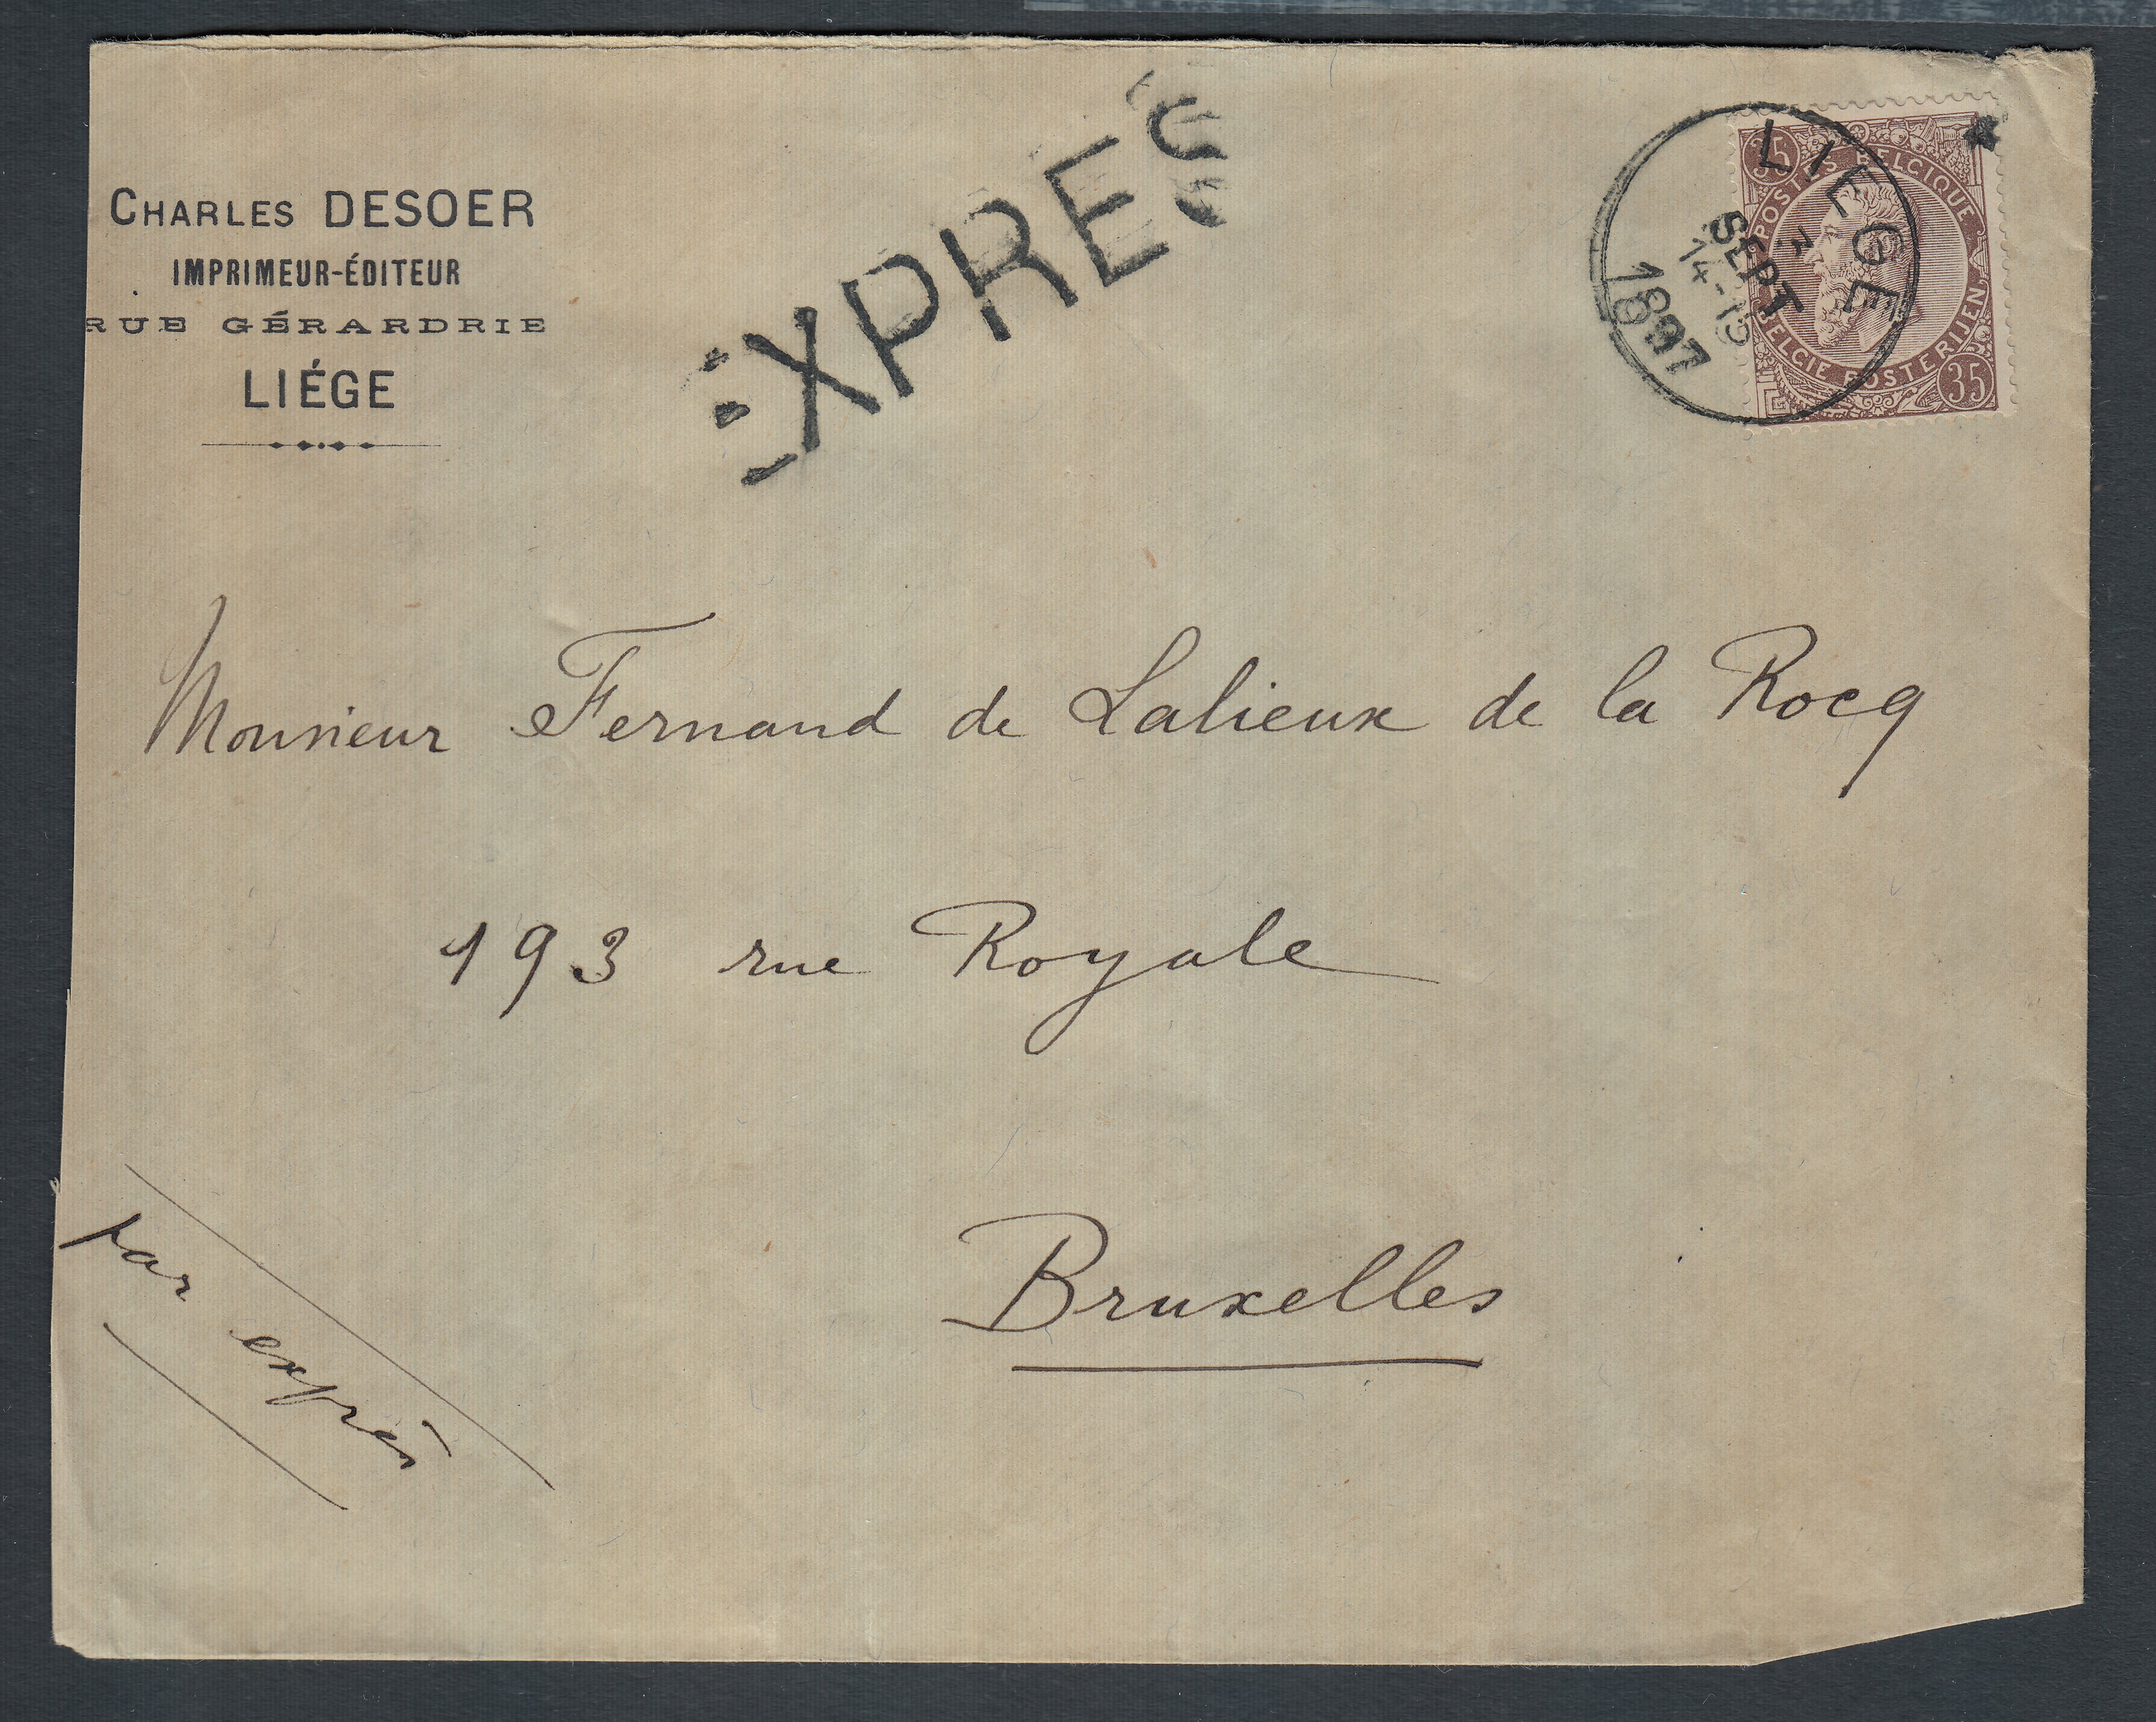 CHARLES DESOER
IMPRIMEUR-ÉDITEUR
RUE GÉRARDRIE
LIÉGE
EXPRES
35
POSTES BELGIQUE
BELGIE POSTERIJEN
35
LIEGE
SEPT
1897
Monsieur Fernand de Lalieux de la Rocq
193 rue Royale
Bruxelles
par exprès